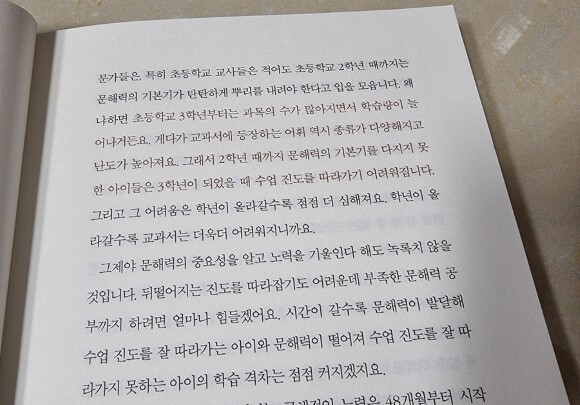 문가들은, 특히 초등학교 교사들은 적어도 초등학교 2학년 때까지는
문해력의 기본기가 탄탄하게 뿌리를 내려야 한다고 입을 모읍니다. 왜
냐하면 초등학교 3학년부터는 과목의 수가 많아지면서 학습량이 늘
어나거든요. 게다가 교과서에 등장하는 어휘 역시 종류가 다양해지고
난도가 높아져요. 그래서 2학년 때까지 문해력의 기본기를 다지지 못
한 아이들은 3학년이 되었을 때 수업 진도를 따라가기 어려워집니다.
그리고 그 어려움은 학년이 올라갈수록 점점 더 심해져요. 학년이 올
라갈수록 교과서는 더욱더 어려워지니까요.
그제야 문해력의 중요성을 알고 노력을 기울인다 해도 녹록치 않을
것입니다. 뒤떨어지는 진도를 따라잡기도 어려운데 부족한 문해력 공
부까지 하려면 얼마나 힘들겠어요. 시간이 갈수록 문해력이 발달해
수업 진도를 잘 따라가는 아이와 문해력이 떨어져 수업 진도를 잘 따
라가지 못하는 아이의 학습 격차는 점점 커지겠지요.
노력은 48개월부터 시작